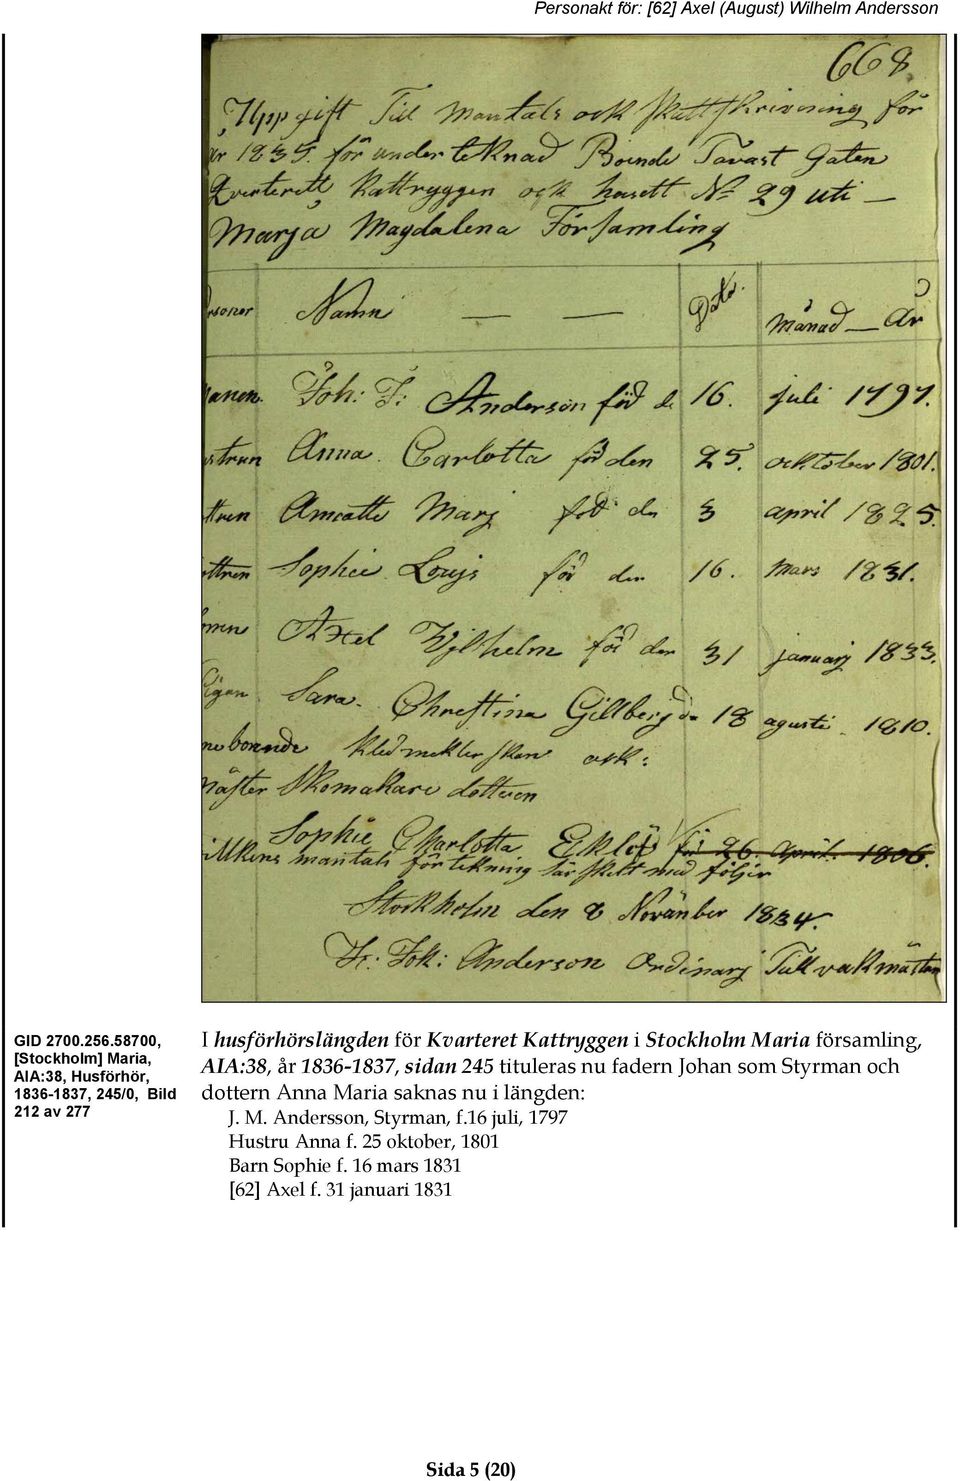 Personakt för: [62] Axel (August) Wilhelm Andersson
668
Uppgift Till Mantals ock skattskrivning för
år 1835. för underteknad Boende Tavast Gaten
Qvarterett Kattryggen ock husett No 29 uti
Marja Magdalena Församling
rsoner Namn Data. månad År
anen. Joh: F: Anderson föd d. 16. juli 1797.
ustrun Anna Carlotta föd den 25. oktober 1801.
ttren Marj föd den 3 april 1825.
ottren Sophie Lovjs föd den 16. Mars 1831.
onen Axel Wjlhelm föd den 31 januarj 1833.
Pigan Sara Christina Gillberg 18 agusti 1810.
neboende ock:
mäster Skomakare dotteren
Sophie Charlotta Eklöf föd 26. April. 1806.
villkens mantals förtekning särskilt med följer
Stockholm den 8 Novänber 1834.
Joh: Anderson Ordinarj Tullvakmästare
GID 2700.256.58700,
[Stockholm] Maria,
AIA:38, Husförhör,
1836-1837, 245/0, Bild
212 av 277
I husförhörslängden för Kvarteret Kattryggen i Stockholm Maria församling,
AIA:38, år 1836-1837, sidan 245 tituleras nu fadern Johan som Styrman och
dottern Anna Maria saknas nu i längden:
J. M. Andersson, Styrman, f.16 juli, 1797
Hustru Anna f. 25 oktober, 1801
Barn Sophie f. 16 mars 1831
[62] Axel f. 31 januari 1831
Sida 5 (20)